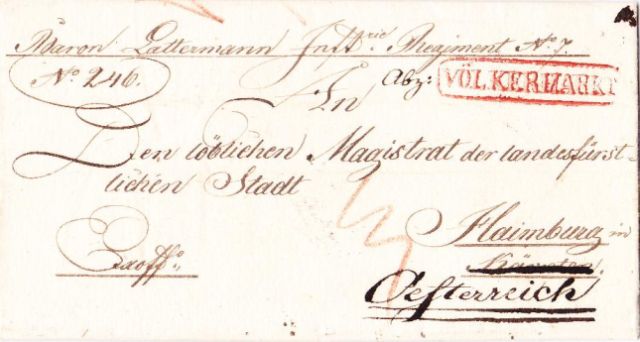 Baron Lattermann Inft:rie Regiment No 7.
No 246.
Abz: VÖLKERMARKT
An
Den löblichen Magistrat der landesfürst-
lichen Stadt
Haimburg in
Exoffo:
Kärnten.
Oesterreich